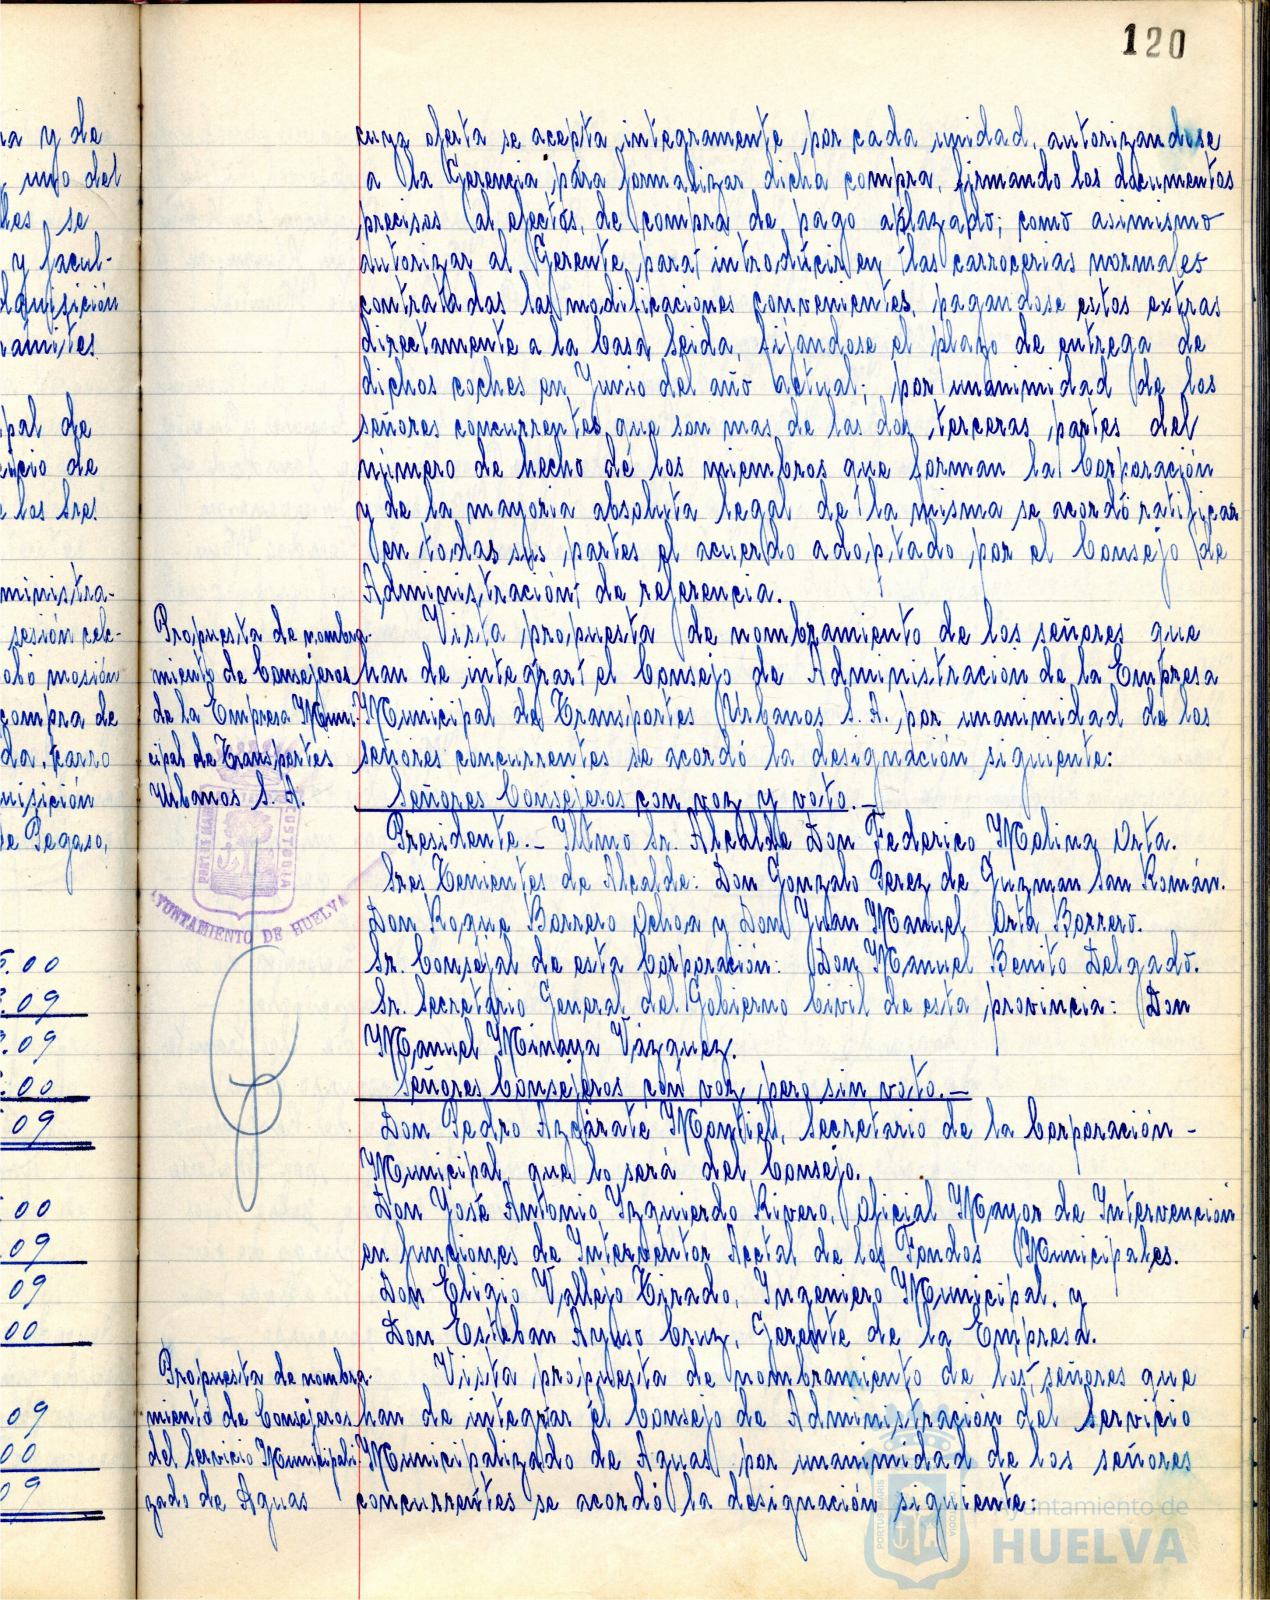 120
na y de
uno del
ches se
y facul-
dquisición
ramites
pal de
cicio de
e los Sres.
ministra-
sesión cele-
obo moción
compra de
da, carro
uisición
de Pegaso,
5.00
3.09
3.09
5.00
09
.00
.09
09
00
09
00
09
cuya oferta se acepta integramente por cada unidad, autorizandose
a la Gerencia para formalizar dicha compra, firmando los documentos
precisos al efectos, de compra de pago aplazado; como asimismo
autorizar al Gerente para introducir en las carrocerias normales
contratadas las modificaciones convenientes, pagandose estos extras
directamente a la Casa Seida, fijándose el plazo de entrega de
dichos coches en Junio del año actual; por unanimidad de los
señores concurrentes que son mas de las dos terceras partes del
número de hecho de los miembros que forman la Corporación
y de la mayoria absoluta legal de la misma se acordó ratificar
en todas sus partes el acuerdo adoptado por el Consejo de
Administración de referencia.
Propuesta de nombra-
miento de Consejeros
de la Empresa Muni-
cipal de Transportes
Urbanos S. A.
Vista propuesta de nombramiento de los señores que
han de integrar el Consejo de Administración de la Empresa
Municipal de Transportes Urbanos S. A. por unanimidad de los
señores concurrentes se acordó la designación siguiente:
Señores Consejeros con voz y voto.-
Presidente.- Iltmo Sr. Alcalde Don Federico Molina Orta.
Sres Tenientes de Alcalde: Don Gonzalo Perez de Guzman San Román.
Don Roque Barrero Ochoa y Don Juan Manuel Orta Borrero.
Sr. Consejal de esta Corporación: Don Manuel Benito Delgado.
Sr. Secretario General del Gobierno Civil de esta provincia: Don
Manuel Minaya Vázquez.
Señores Consejeros con voz pero sin voto.-
Don Pedro Azcárate Montiel, Secretario de la Corporación -
Municipal, que lo será del Consejo.
Don José Antonio Izquierdo Rivero, Oficial Mayor de Intervención
en funciones de Interventor Acctal de los Fondos Municipales.
Don Eligio Vallejo Tirado, Ingeniero Municipal. y
Don Esteban Ayuso Cruz, Gerente de la Empresa.
Propuesta de nombra-
miento de Consejeros
del Servicio Municipali-
zado de Aguas
Vista propuesta de nombramiento de los señores que
han de integrar el Consejo de Administración del Servicio
Municipalizado de Aguas por unanimidad de los señores
concurrentes se acordó la designación siguiente:
CUSTODIA
AYUNTAMIENTO DE HUELVA
Ayuntamiento de
HUELVA